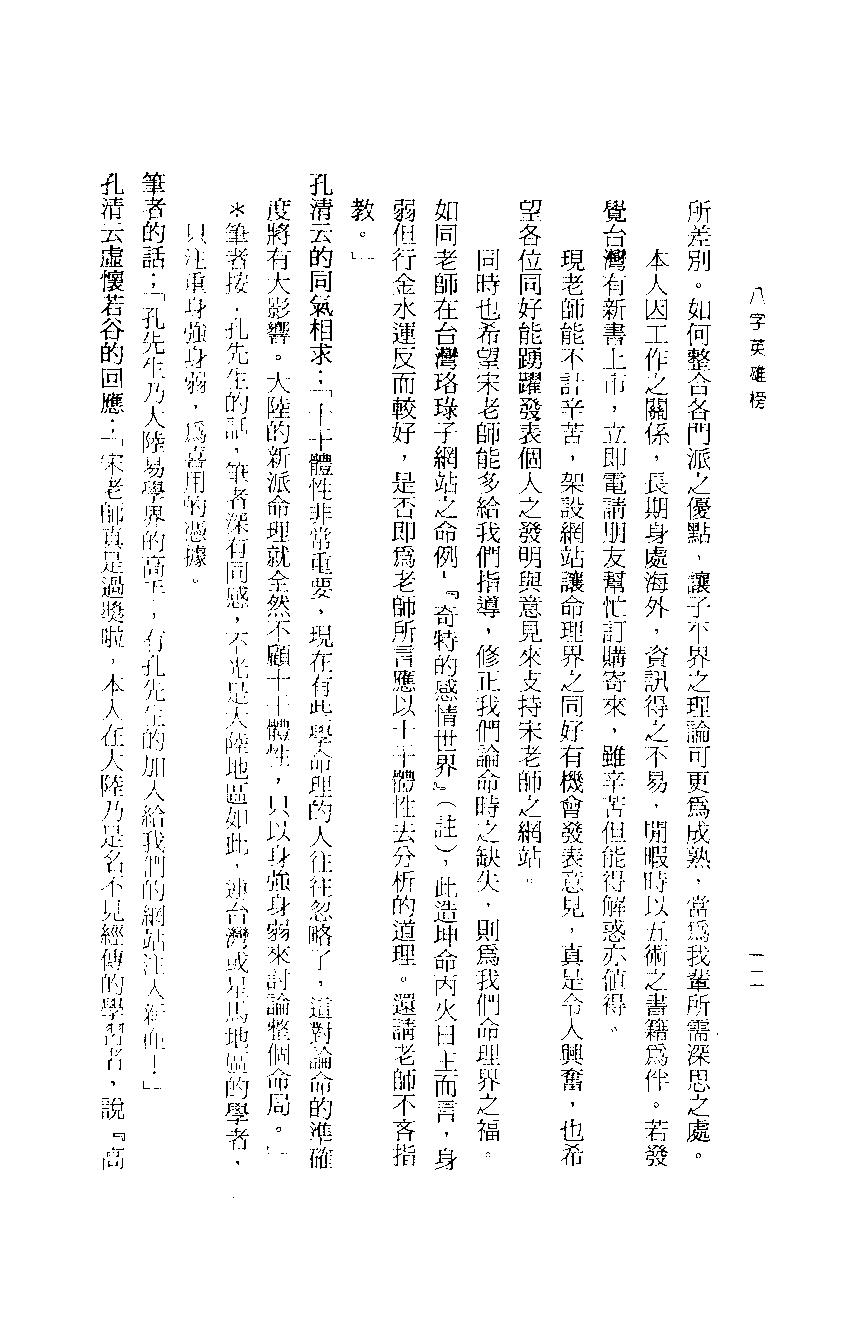 八字英雄榜
一二
所差別。如何整合各門派之優點，讓子平界之理論可更為成熟，當為我輩所需深思之處。
本人因工作之關係，長期身處海外，資訊得之不易，閒暇時以五術之書籍為伴。若發
覺台灣有新書上市，立即電請朋友幫忙訂購寄來，雖辛苦但能得解惑亦值得。
現老師能不計辛苦，架設網站讓命理界之同好有機會發表意見，真是令人興奮，也希
望各位同好能踴躍發表個人之發明與意見來支持宋老師之網站。
同時也希望宋老師能多給我們指導，修正我們論命時之缺失，則為我們命理界之福。
如同老師在台灣珞琭子網站之命例，『奇特的感情世界』（註），此造坤命丙火日主而言，身
弱但行金水運反而較好，是否即為老師所言應以十干體性去分析的道理。還請老師不吝指
教。」
孔清云的同氣相求：「十干體性非常重要，現在有些學命理的人往往忽略了，這對論命的準確
度將有大影響。大陸的新派命理就全然不顧十干體性，只以身強身弱來討論整個命局。」
＊筆者按：孔先生的話，筆者深有同感，不光是大陸地區如此，連台灣或星馬地區的學者，
只注重身強身弱，為喜用的憑據。
筆者的話：「孔先生乃大陸易學界的高手，有孔先生的加入給我們的網站注入新血！」
孔清云虛懷若谷的回應：「宋老師真是過獎啦，本人在大陸乃是名不見經傳的學習者，說『高